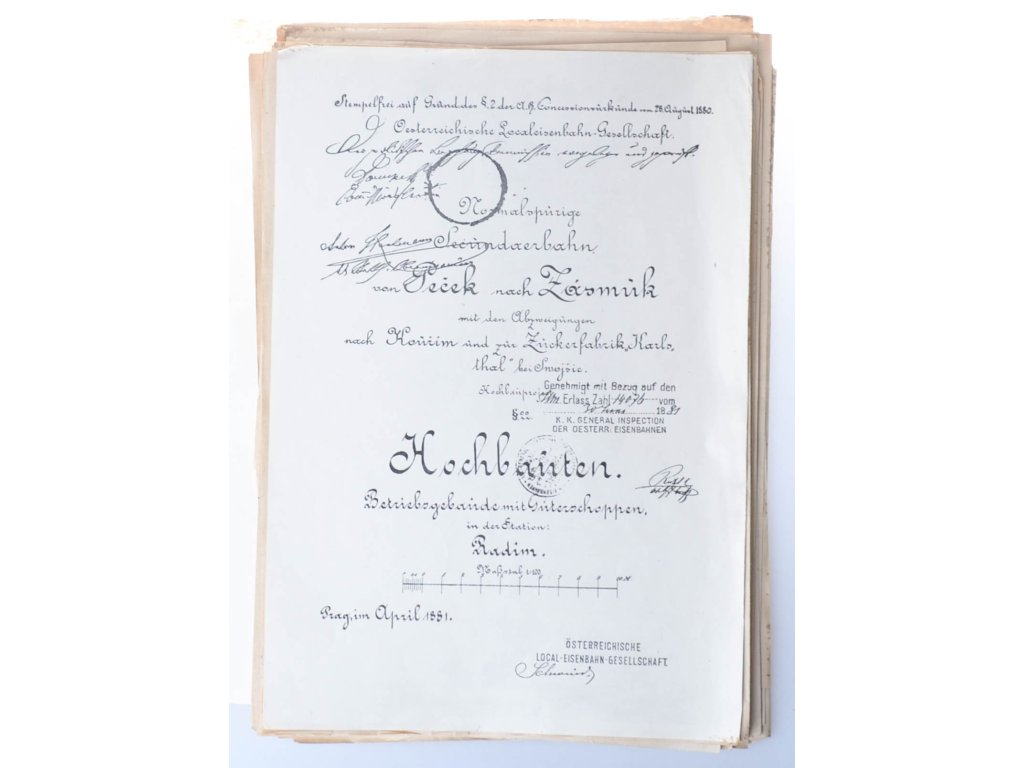 Stempelfrei auf Grund des §. 2 der A. H. Concessionsurkunde vom 28. August 1880.
Oesterreichische Localeisenbahn-Gesellschaft.
und geprüft.
Normalspurige
Secundaerbahn
von Peček nach Zásmuk
mit den Abzweigungen
nach Kouřim und zur Zuckerfabrik „Karls,
thal" bei Swojšic.
Hochbauproject
Genehmigt mit Bezug auf den
Erlass Zahl 14076 vom
1881
§.
K. K. GENERAL INSPECTION
DER OESTERR. EISENBAHNEN
Hochbauten.
Betriebsgebäude mit Güterschoppen,
in der Station:
Radim.
Maßstab 1:100
Prag, im April 1881.
ÖSTERREICHISCHE
LOCAL-EISENBAHN-GESELLSCHAFT.